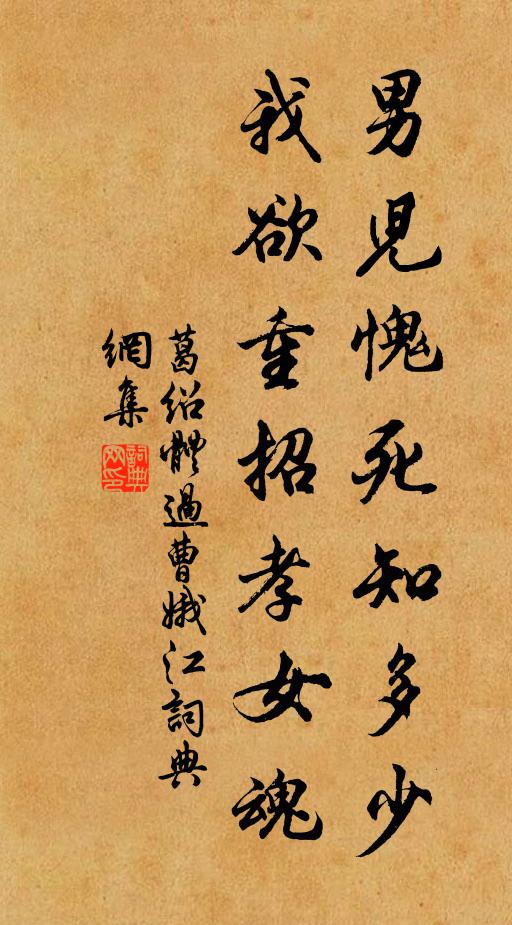 男児愧死知多少
我欲重招孝女魂
葛绍體過曹娥江詞典
網集
詞典網印